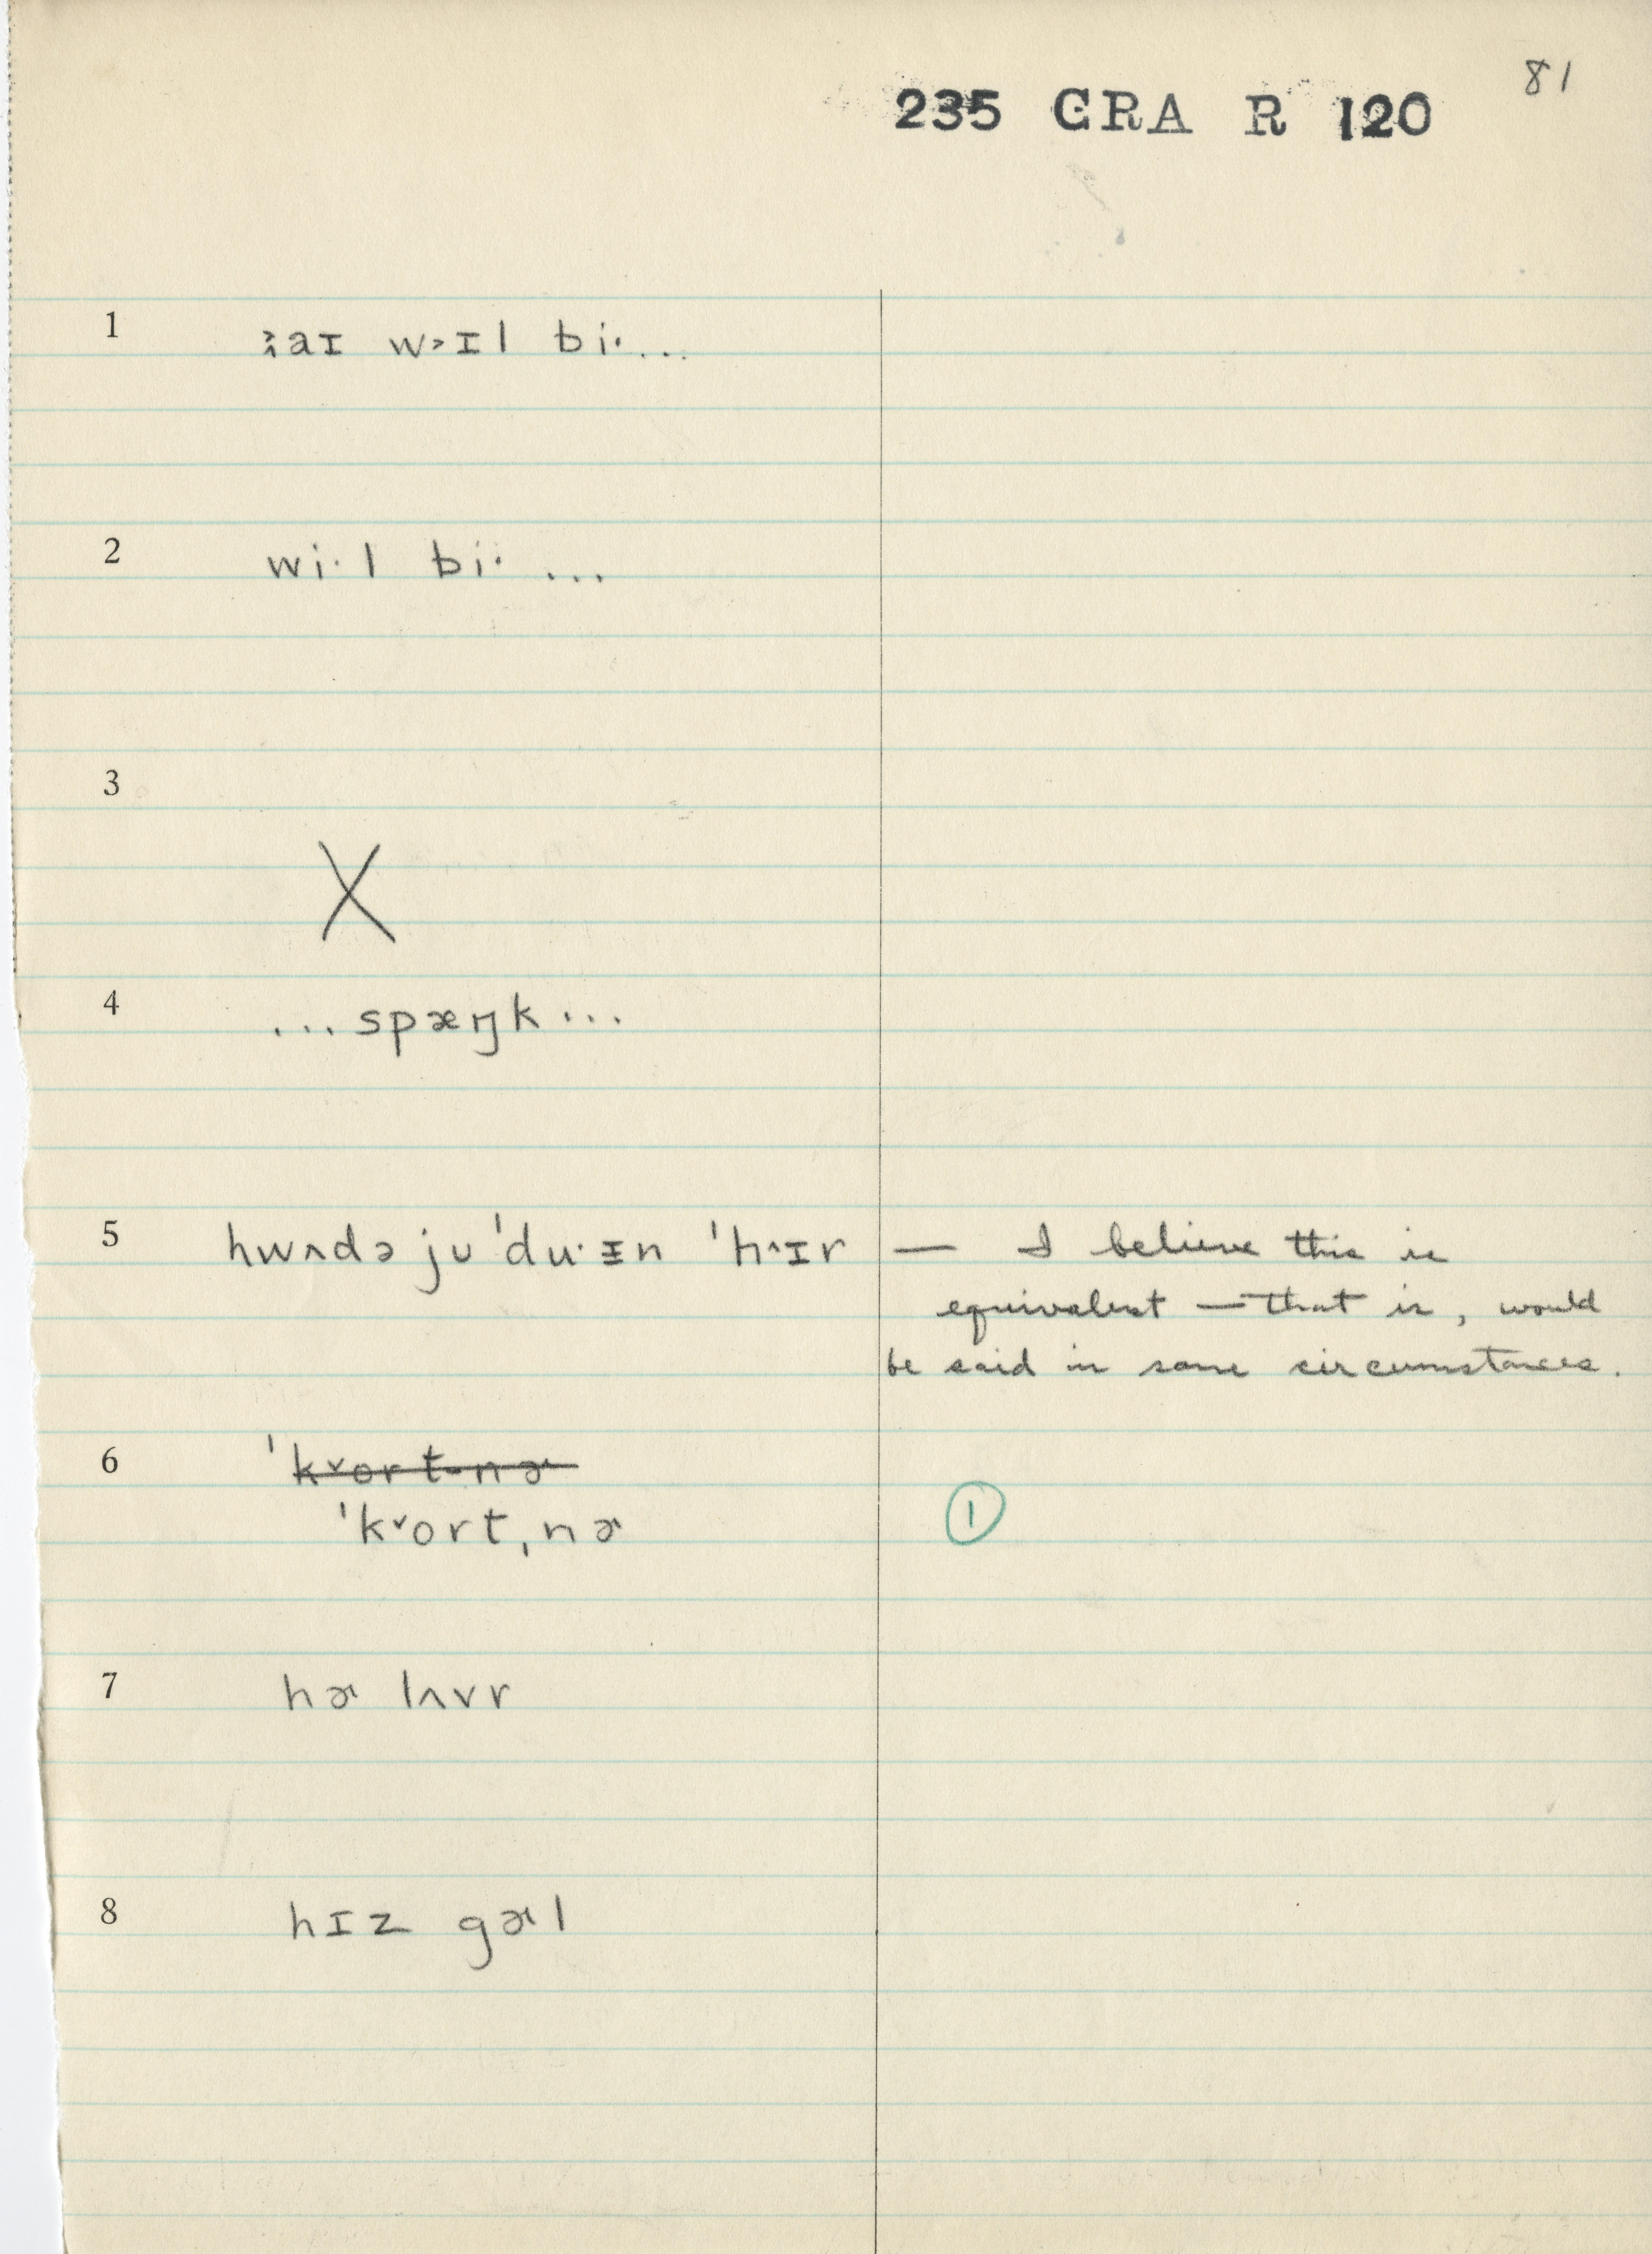 81
235 GRA R 120
1 ʔaɪ wɪl bi· ...
2 wi·l bi· ...
3
X
4 ...spæŋk...
5 hwʌdə jʊ ˈdu·ɪn ˈhɪr — I believe this is
equivalent — that is, would
be said in same circumstances.
6 ˈkˇort-nɚ
ˈkˇortˌnɚ 1
7 hɚ lʌvr
8 hɪz gɚl